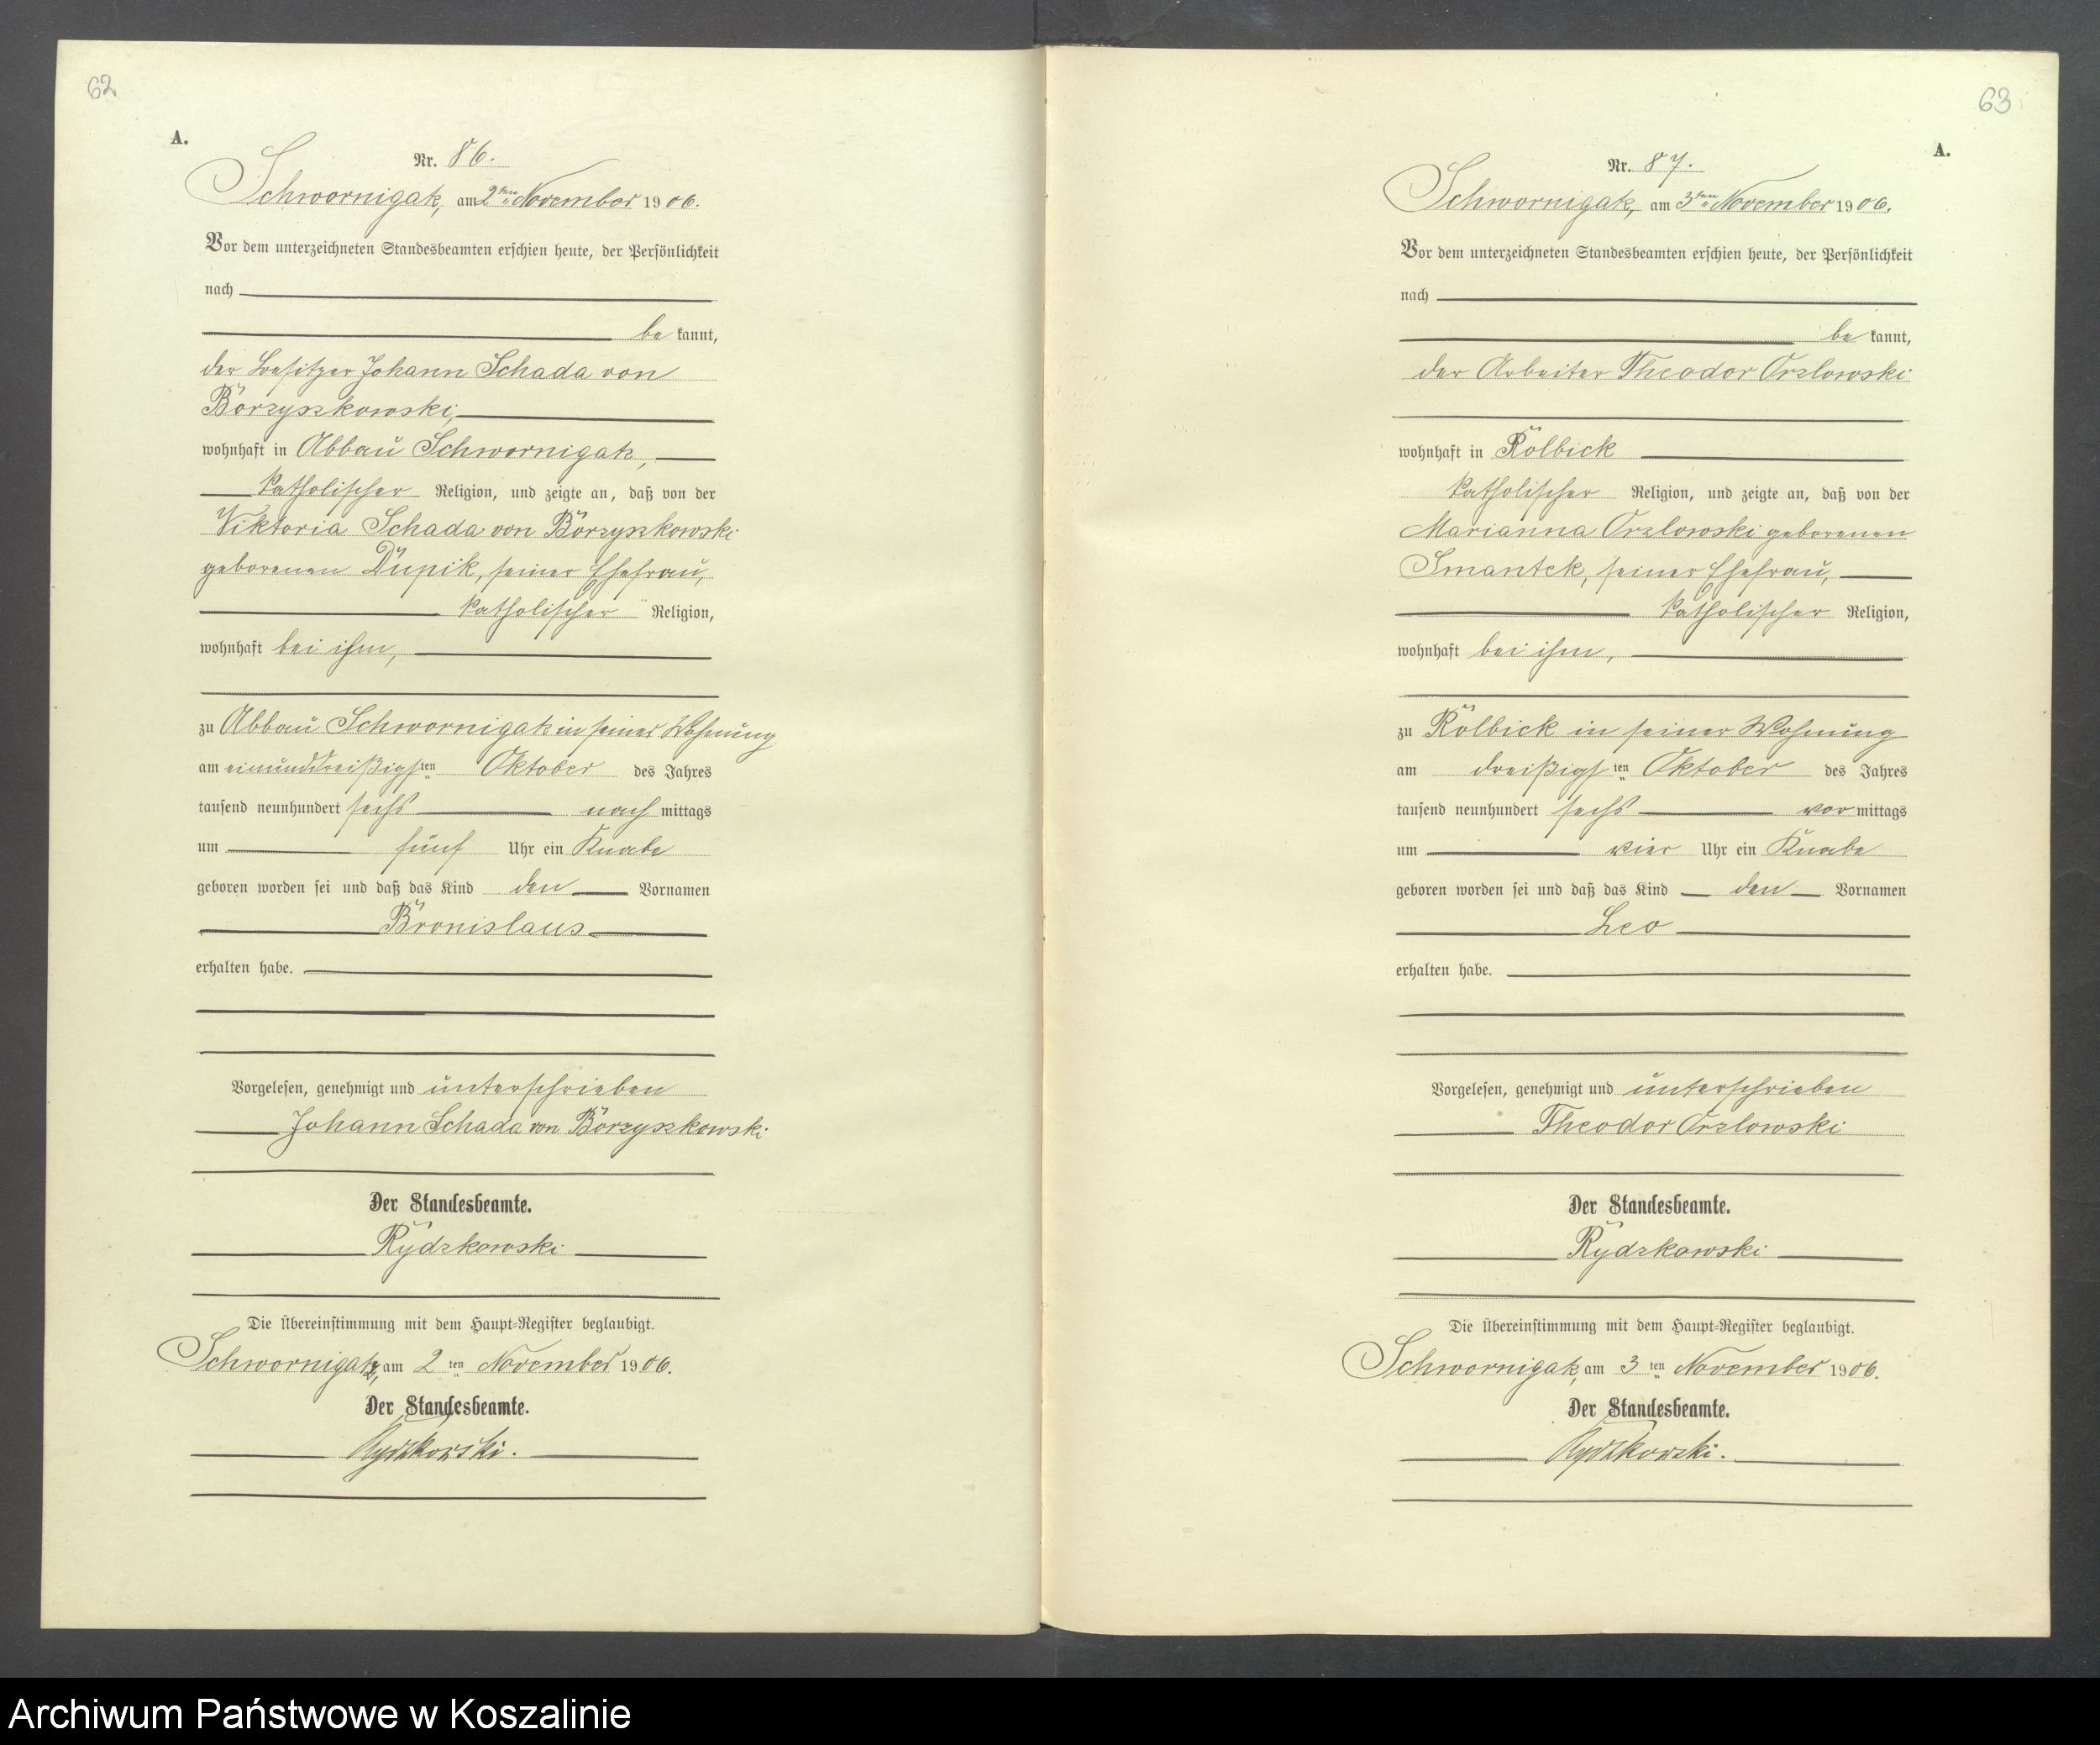 62
A.
Nr. 86.
Schwornigatz, am 2ten November 1906.
Vor dem unterzeichneten Standesbeamten erschien heute, der Persönlichkeit
nach
be kannt,
der Besitzer Johann Schada von
Borzyszkowski,
wohnhaft in Abbau Schwornigatz,
katholischer Religion, und zeigte an, daß von der
Viktoria Schada von Borzyszkowski
geborenen Dupik, seiner Ehefrau,
katholischer Religion,
wohnhaft bei ihm,
zu Abbau Schwornigatz in seiner Wohnung
am einunddreißigsten Oktober des Jahres
tausend neunhundert sechs nach mittags
um fünf Uhr ein Knabe
geboren worden sei und daß das Kind den Vornamen
Bronislaus
erhalten habe.
Vorgelesen, genehmigt und unterschrieben
Johann Schada von Borzyszkowski
Der Standesbeamte.
Rydzkowski
Die Übereinstimmung mit dem Haupt-Register beglaubigt.
Schwornigatz, am 2ten November 1906.
Der Standesbeamte.
Rydzkowski.
63
A.
Nr. 87.
Schwornigatz, am 3ten November 1906.
Vor dem unterzeichneten Standesbeamten erschien heute, der Persönlichkeit
nach
be kannt,
der Arbeiter Theodor Orzlowski
wohnhaft in Rolbick
katholischer Religion, und zeigte an, daß von der
Marianna Orzlowski geborenen
Smantek, seiner Ehefrau,
katholischer Religion,
wohnhaft bei ihm,
zu Rolbick in seiner Wohnung
am dreißigsten Oktober des Jahres
tausend neunhundert sechs vor mittags
um vier Uhr ein Knabe
geboren worden sei und daß das Kind den Vornamen
Leo
erhalten habe.
Vorgelesen, genehmigt und unterschrieben
Theodor Orzlowski
Der Standesbeamte.
Rydzkowski
Die Übereinstimmung mit dem Haupt-Register beglaubigt.
Schwornigatz, am 3ten November 1906.
Der Standesbeamte.
Rydzkowski.
Archiwum Państwowe w Koszalinie